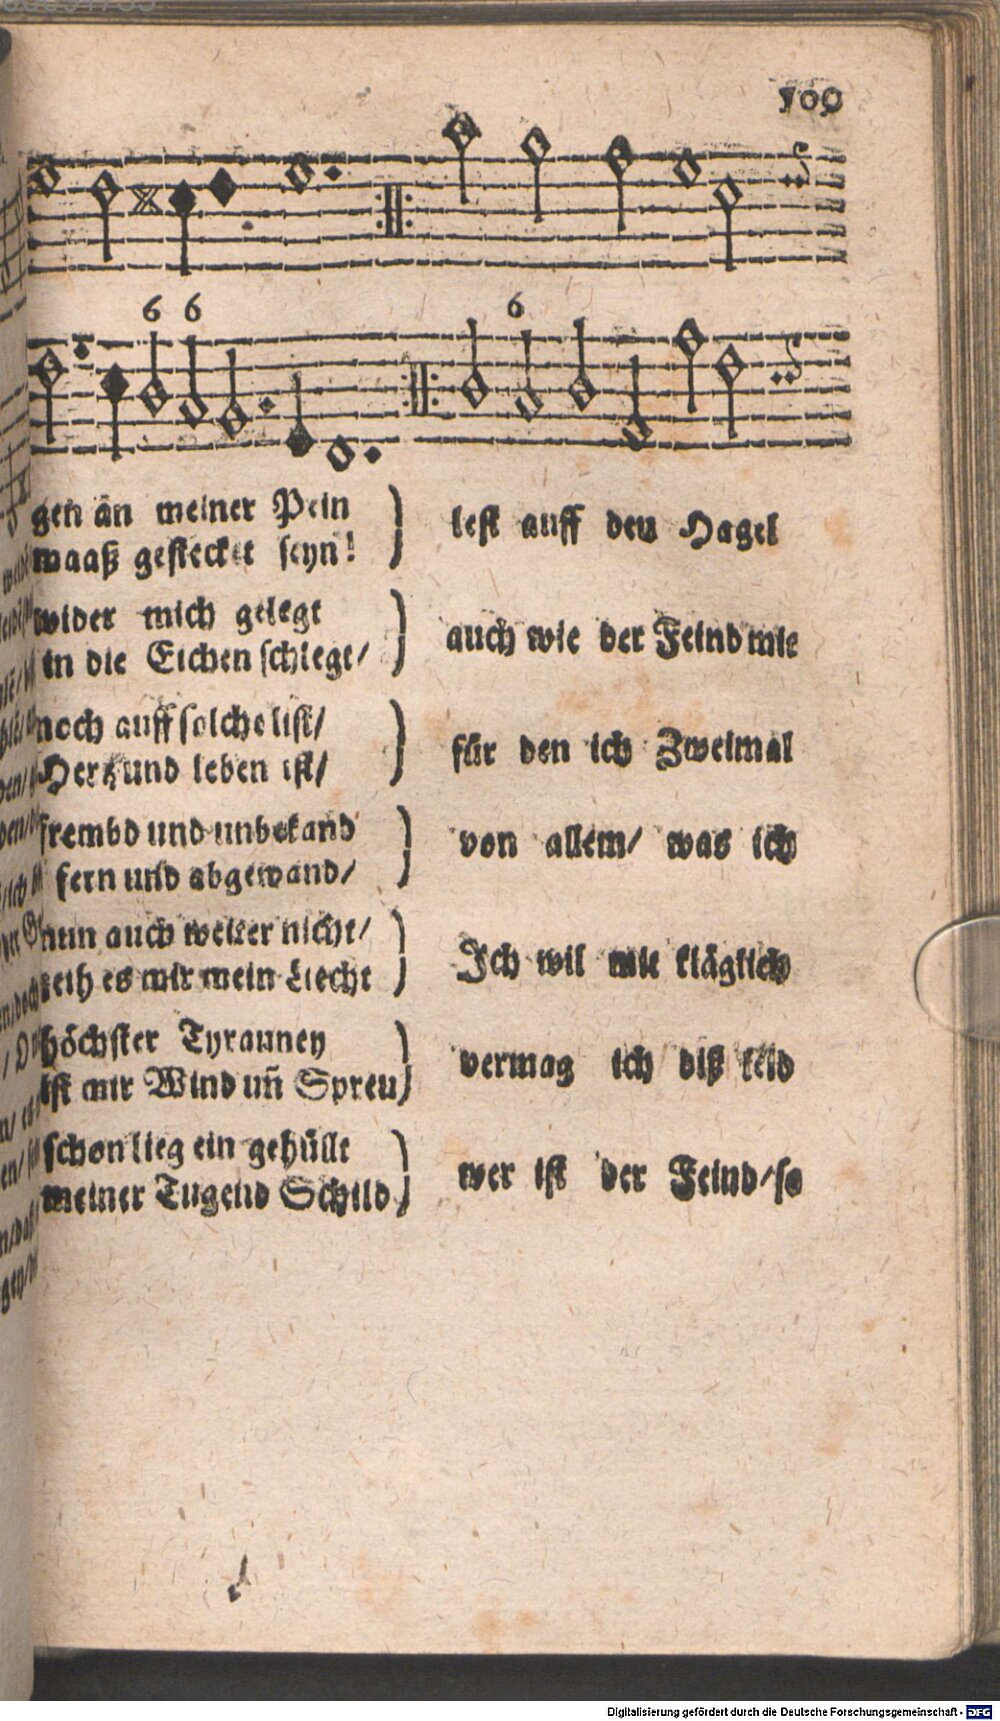 109
6 6 6
gen an meiner Pein
waaß gestecket seyn!
lest auff den Hagel
wider mich gelegt
in die Eichen schlegt/
auch wie der Feind mir
noch auff solche list/
Hertz und leben ist/
für den ich Zweimal
frembd und unbekand
fern und abgewand/
von allem/ was ich
nun auch weiter nicht/
zeih es mir mein Liecht
Ich wil mit kläglich
höchster Tyranney
ist mir Wind uñ Spreu
vermag ich diß leid
schon lieg ein gehüllt
meiner Tugend Schild
wer ist der Feind/ so
Digitalisierung gefördert durch die Deutsche Forschungsgemeinschaft - DFG